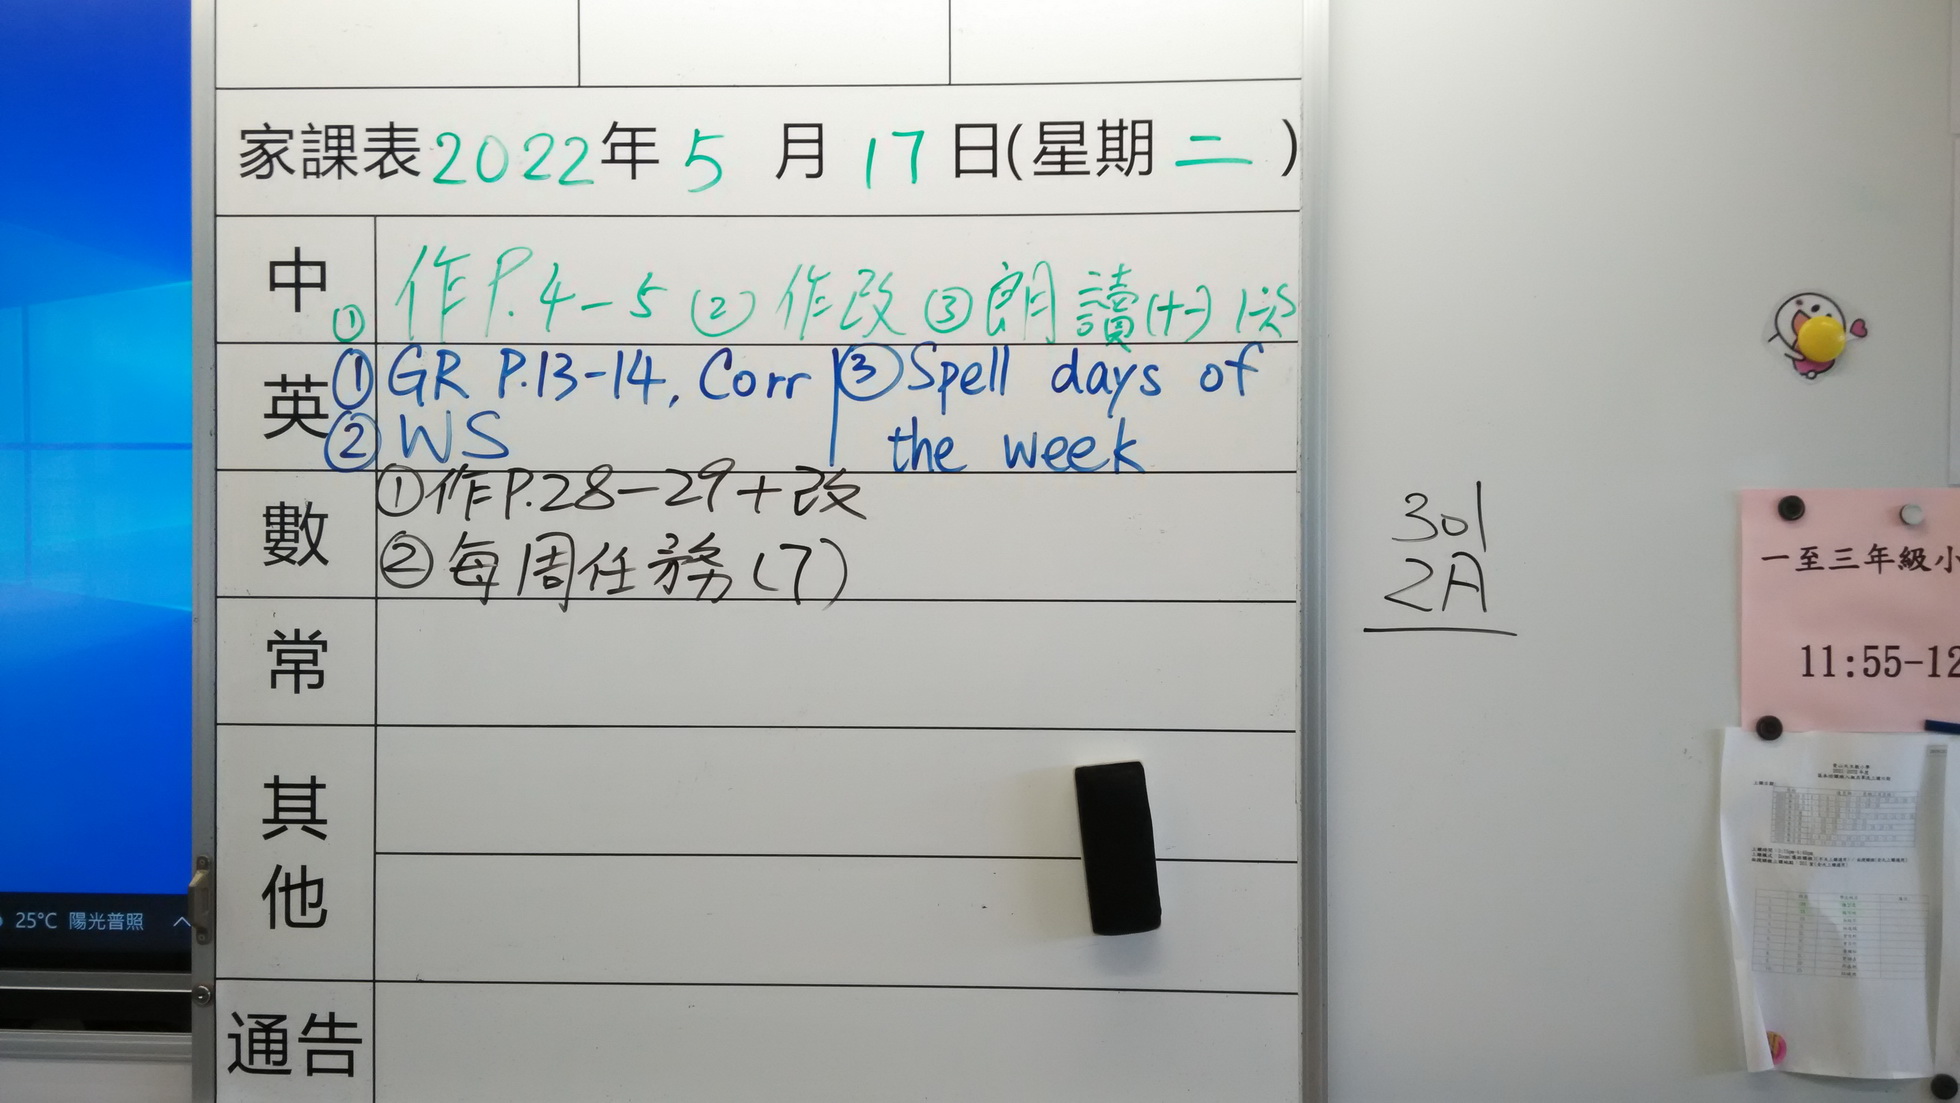 家課表2022年 5 月 17 日(星期 二 )
中 ① 作P.4-5 ② 作改 ③朗讀(十一) 1次
英 ① GR P.13-14, Corr ③ Spell days of
② WS the week
數 ①作P.28-29+改
②每周任務(7)
常
其他
通告
301
2A
一至三年級小
11:55-12
25°C 陽光普照